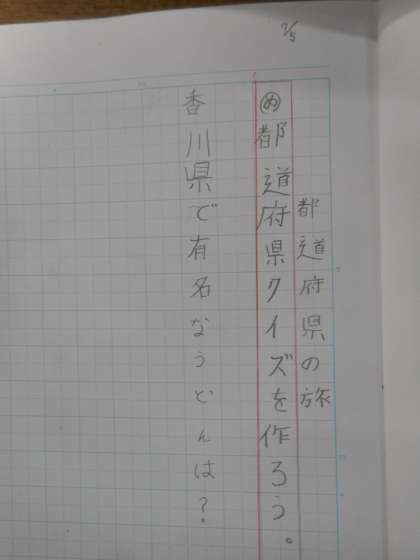 7/5
都道府県の旅
め都道府県クイズを作ろう。
香川県で有名なうどんは?